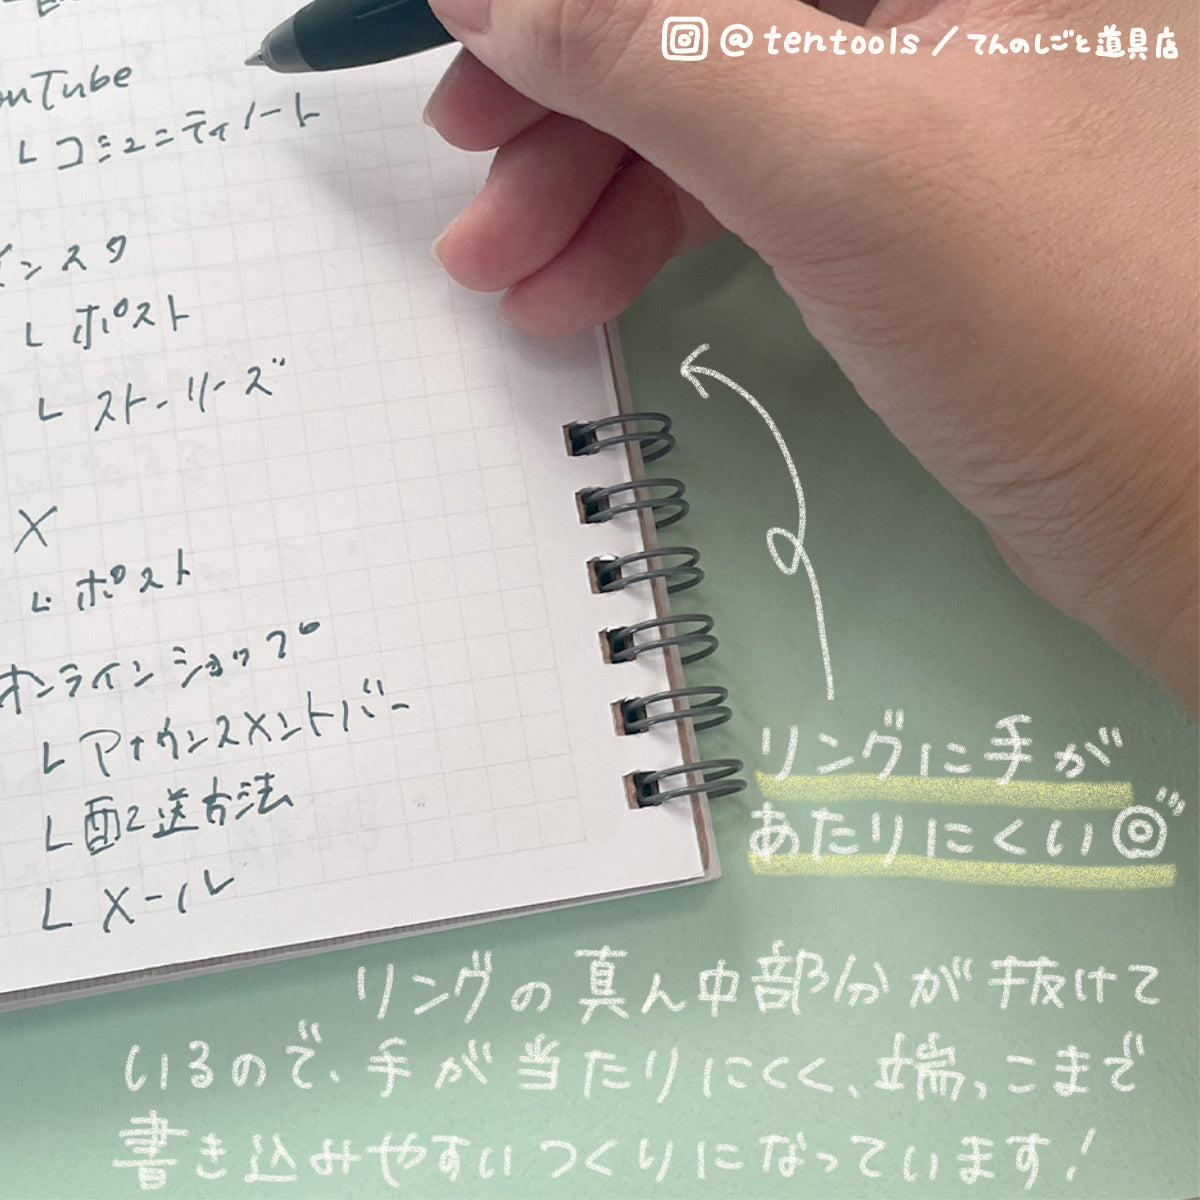 @tentools/てんのしごと道具店
ouTube
L コミュニティノート
インスタ
L ポスト
L ストーリーズ
X
L ポスト
オンラインショップ
L アナウンスメントバー
L 配送方法
L メール
リングに手が
あたりにくい◎
リングの真ん中部分が抜けて
いるので、手が当たりにくく、端っこまで
書き込みやすいつくりになっています!